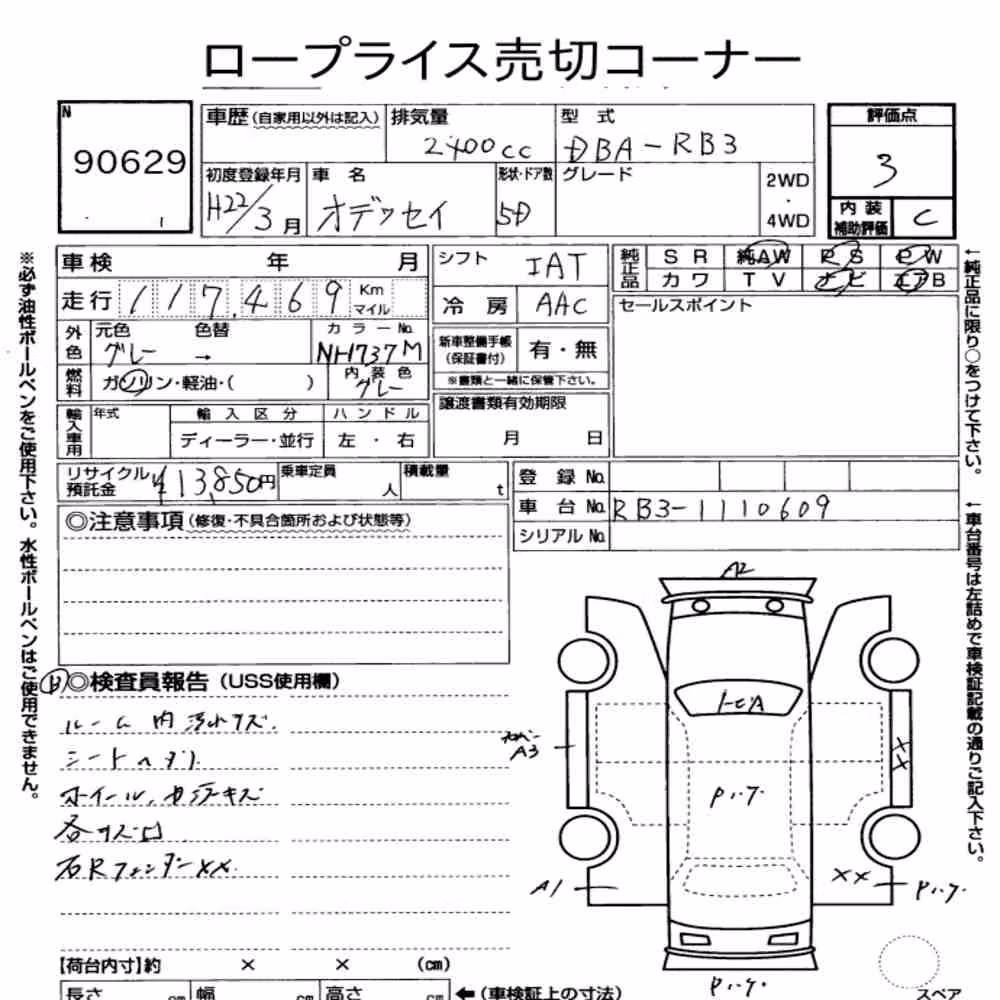 ロープライス売切コーナー
N
90629
車歴 (自家用以外は記入)
排気量
2400cc
型式
DBA-RB3
評価点
3
内装
補助評価
C
初度登録年月
H22/3月
車名
オデッセイ
形状・ドア数
5D
グレード
2WD
・
4WD
車検 年 月
走行 117,469 Km
マイル
外色
元色
グレー
色替
→
カラーNo.
NH737M
燃料
ガソリン・軽油・( )
内装色
グレー
輸入車用
年式
輸入区分
ディーラー・並行
ハンドル
左・右
シフト
IAT
冷房
AAC
新車整備手帳
(保証書付)
有・無
※書類と一緒に保管下さい。
譲渡書類有効期限
月 日
純正品
SR 純AW PS PW
カワ TV ナビ エアB
セールスポイント
リサイクル
預託金
¥13,850円
乗車定員
人
積載量
t
登録No.
車台No. RB3-1110609
シリアルNo.
◎注意事項 (修復・不具合箇所および状態等)
◎検査員報告 (USS使用欄)
ルーム内汚れキズ.
シートヘタリ
ホイール、ガラスキズ
各キズ凹
右Rフェンダーxx.
A2
トビA
A3
XX
P.いケ.
A1
XX
P.いケ.
P.いケ.
【荷台内寸】約 × × (cm)
長さ cm 幅 cm 高さ cm
←(車検証上の寸法)
スペア
※必ず油性ボールペンをご使用下さい。水性ボールペンはご使用できません。
←純正品に限り○をつけて下さい。
←車台番号は左詰めで車検証記載の通りご記入下さい。